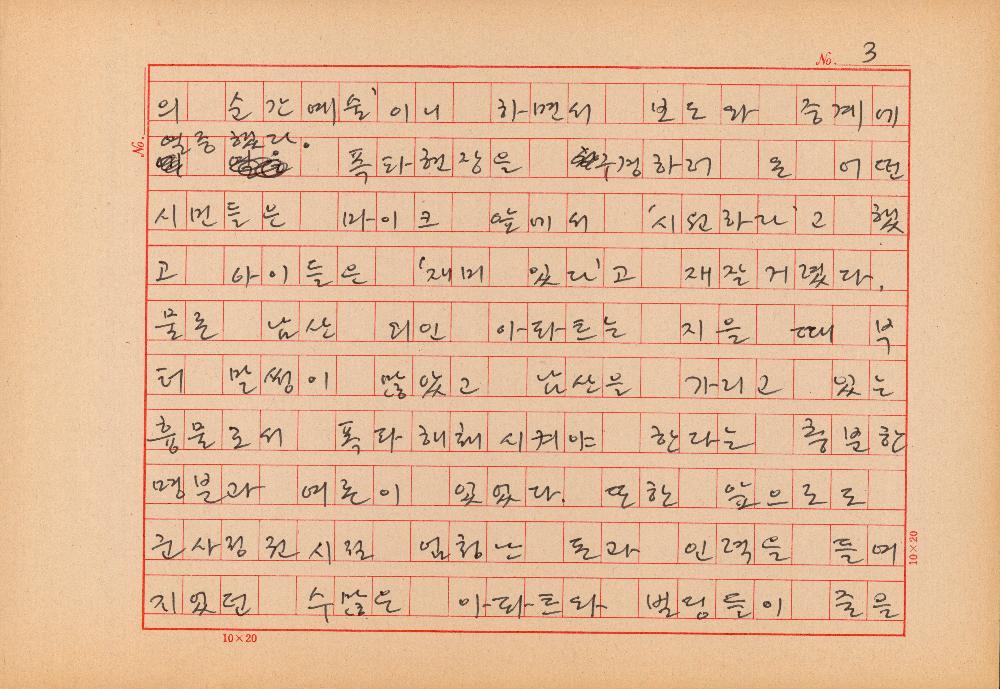 No. 3
의 순간예술'이니 하면서 보도와 중계에
열중했다.
No.
폭파현장을 구경하러 온 어떤
시민들은 마이크 앞에서 '시원하다'고 했
고 아이들은 '재미 있다'고 재잘거렸다.
물론 남산 외인 아파트는 지을 때 부
터 말썽이 많았고 남산을 가리고 있는
흉물로서 폭파 해체시켜야 한다는 충분한
명분과 여론이 있었다. 또한 앞으로도
군사정권시절 엄청난 돈과 인력을 들여
지었던 수많은 아파트와 빌딩들이 줄을
10×20
10×20